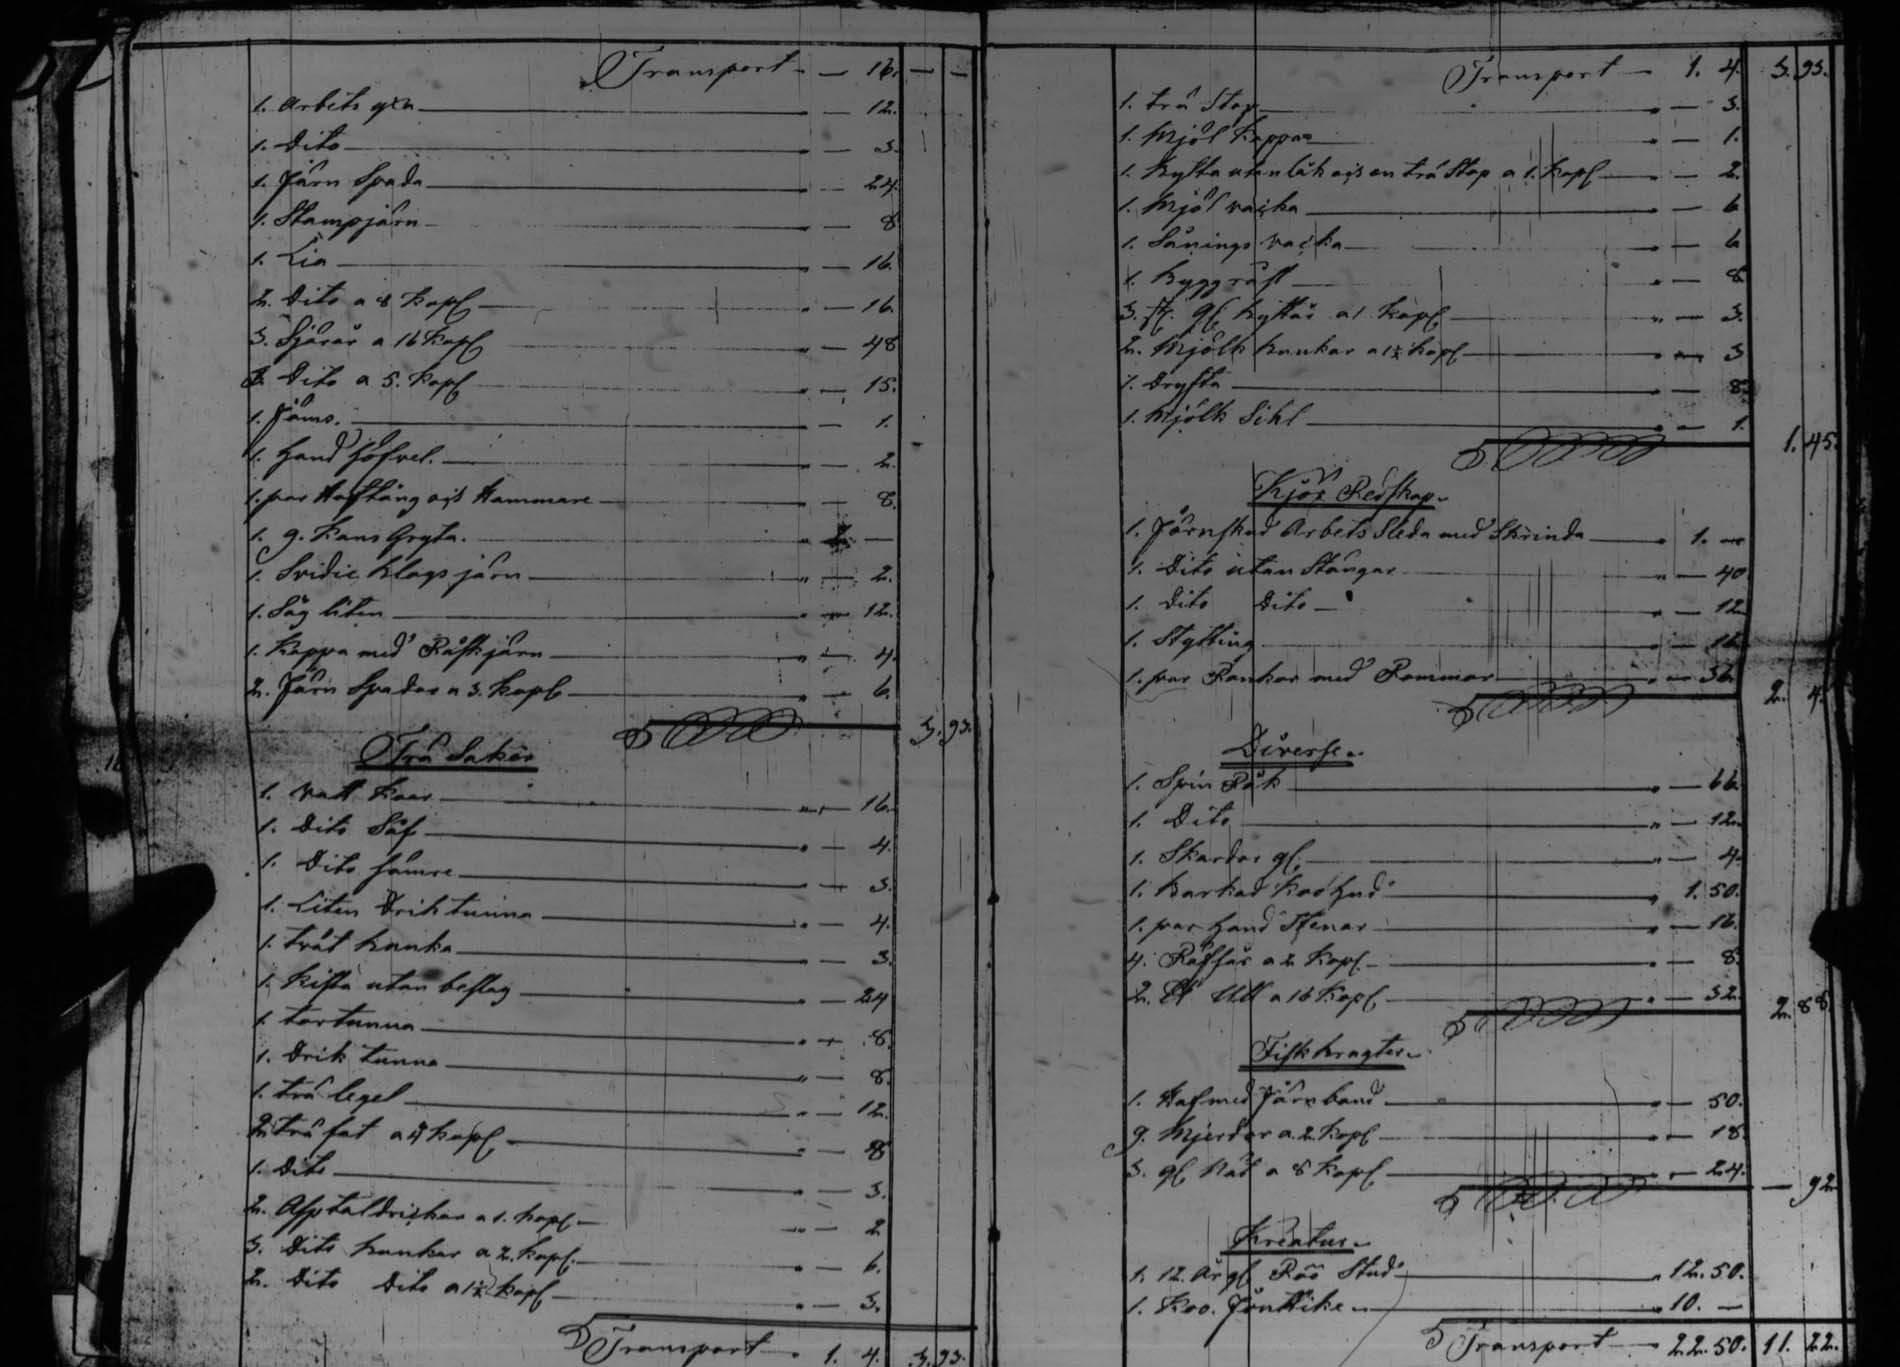 Transport — 16. — —
1. Arbets yxa — 12.
1. Dito — 3.
1. Järn Spada — 24.
1. Stampjärn — 8
1. Lia — 16.
2. Dito a 8 Kopf — 16.
3. Sjäror a 16 Kopf — 48
3. Dito a 5. Kopf — 15.
1. 1.
1. Hand Höfvel. — 2.
1. par Hoftång och Hammare — 8.
1. g. Kans Gryta.
1. järn — 2.
1. Såg liten — 12.
1. Kappa med järn — 4.
2. Järn Spador a 3. Kopf — 6.
3. 93.
Trä Saker
1. Vatt Kaar — 16.
1. Dito Så — 4.
1. Dito — 3.
1. Liten Drik tunna — 4.
1. Hanka — 3.
1. Kista utan beslag — 24
1. tunna — 8.
1. Drik tunna — 8.
1. trä legel — 12.
2. trä fat a 4 Kopf — 8
1. Dito — 3.
2. a 1. Kopf — 2
3. Dito hankar a 2. Kopf — 6.
2. Dito Dito a 1½ Kopf — 3.
Transport — 1. 4. 3. 93.
Transport — 1. 4. 3. 93.
1. trä Stop — 3.
1. Mjöl Kappa — 1.
1. Bytta utan låk och en trä Stop a 1. Kopf — 2.
1. Mjöl vacka — 6
1. Sånings vacka — 6
1. — 8
3. st. gl. Byttor a 1 Kopf — 3.
2. Mjölk hankar a 1½ Kopf — 3
1. Dryfta — 8.
1. Mjölk Sihl — 1.
1. 45.
Kjör Redskap.
1. Järnskod Arbets Sleda med Skrinda — 1. —
1. Dito utan Stänger — 40
1. Dito Dito — 12
1. Stytting — 16
1. par Rankor med Rammar — 36.
2. 4.
Diverse.
1. Spin Råk — 66.
1. Dito — 12.
1. gl. — 4.
1. Barkad Koo Hud — 1. 50.
1. par Hand Stenar — 16.
4. a 2 Kopf — 8.
2. ℔ Ull a 16 Kopf — 32.
2. 88.
Fiskbragter.
1. med Järnband — 50.
9. Mjerdor a. 2. Kopf — 18.
3. gl. Nät a 8 Kopf — 24.
— 92
Kreatur.
1. 12. År gl. Röö Stud — 12. 50.
1. Koo. — 10. —
Transport — 22. 50. 11. 22.